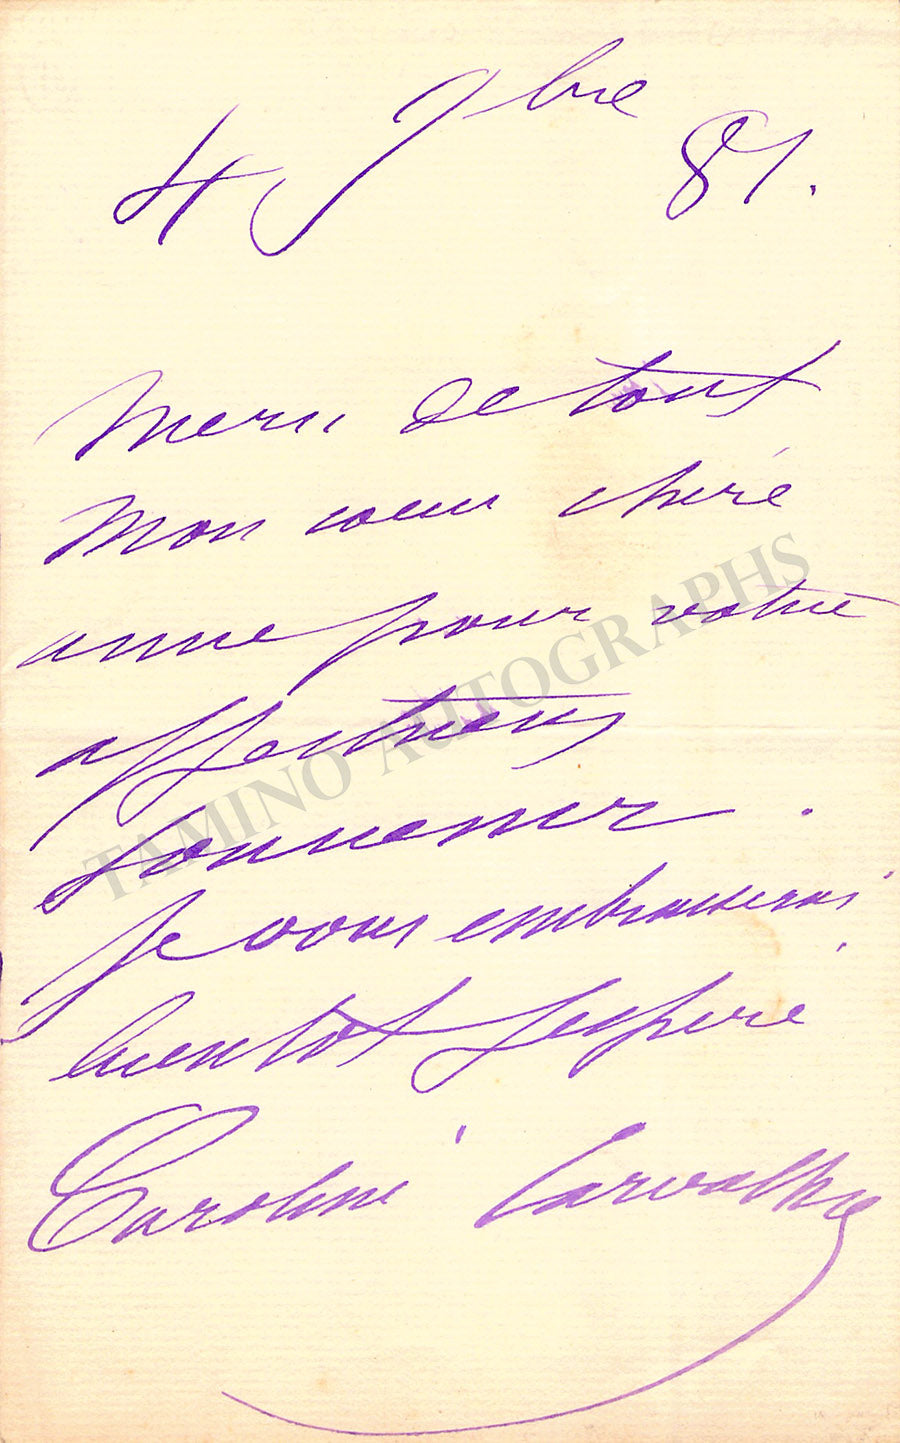 4 9bre 81.
Merci de tout
mon coeur chère
amie pour votre
affectueux
souvenir.
Je vous embrasserai
bientôt j'espère
Caroline Carvalho
TAMINO AUTOGRAPHS